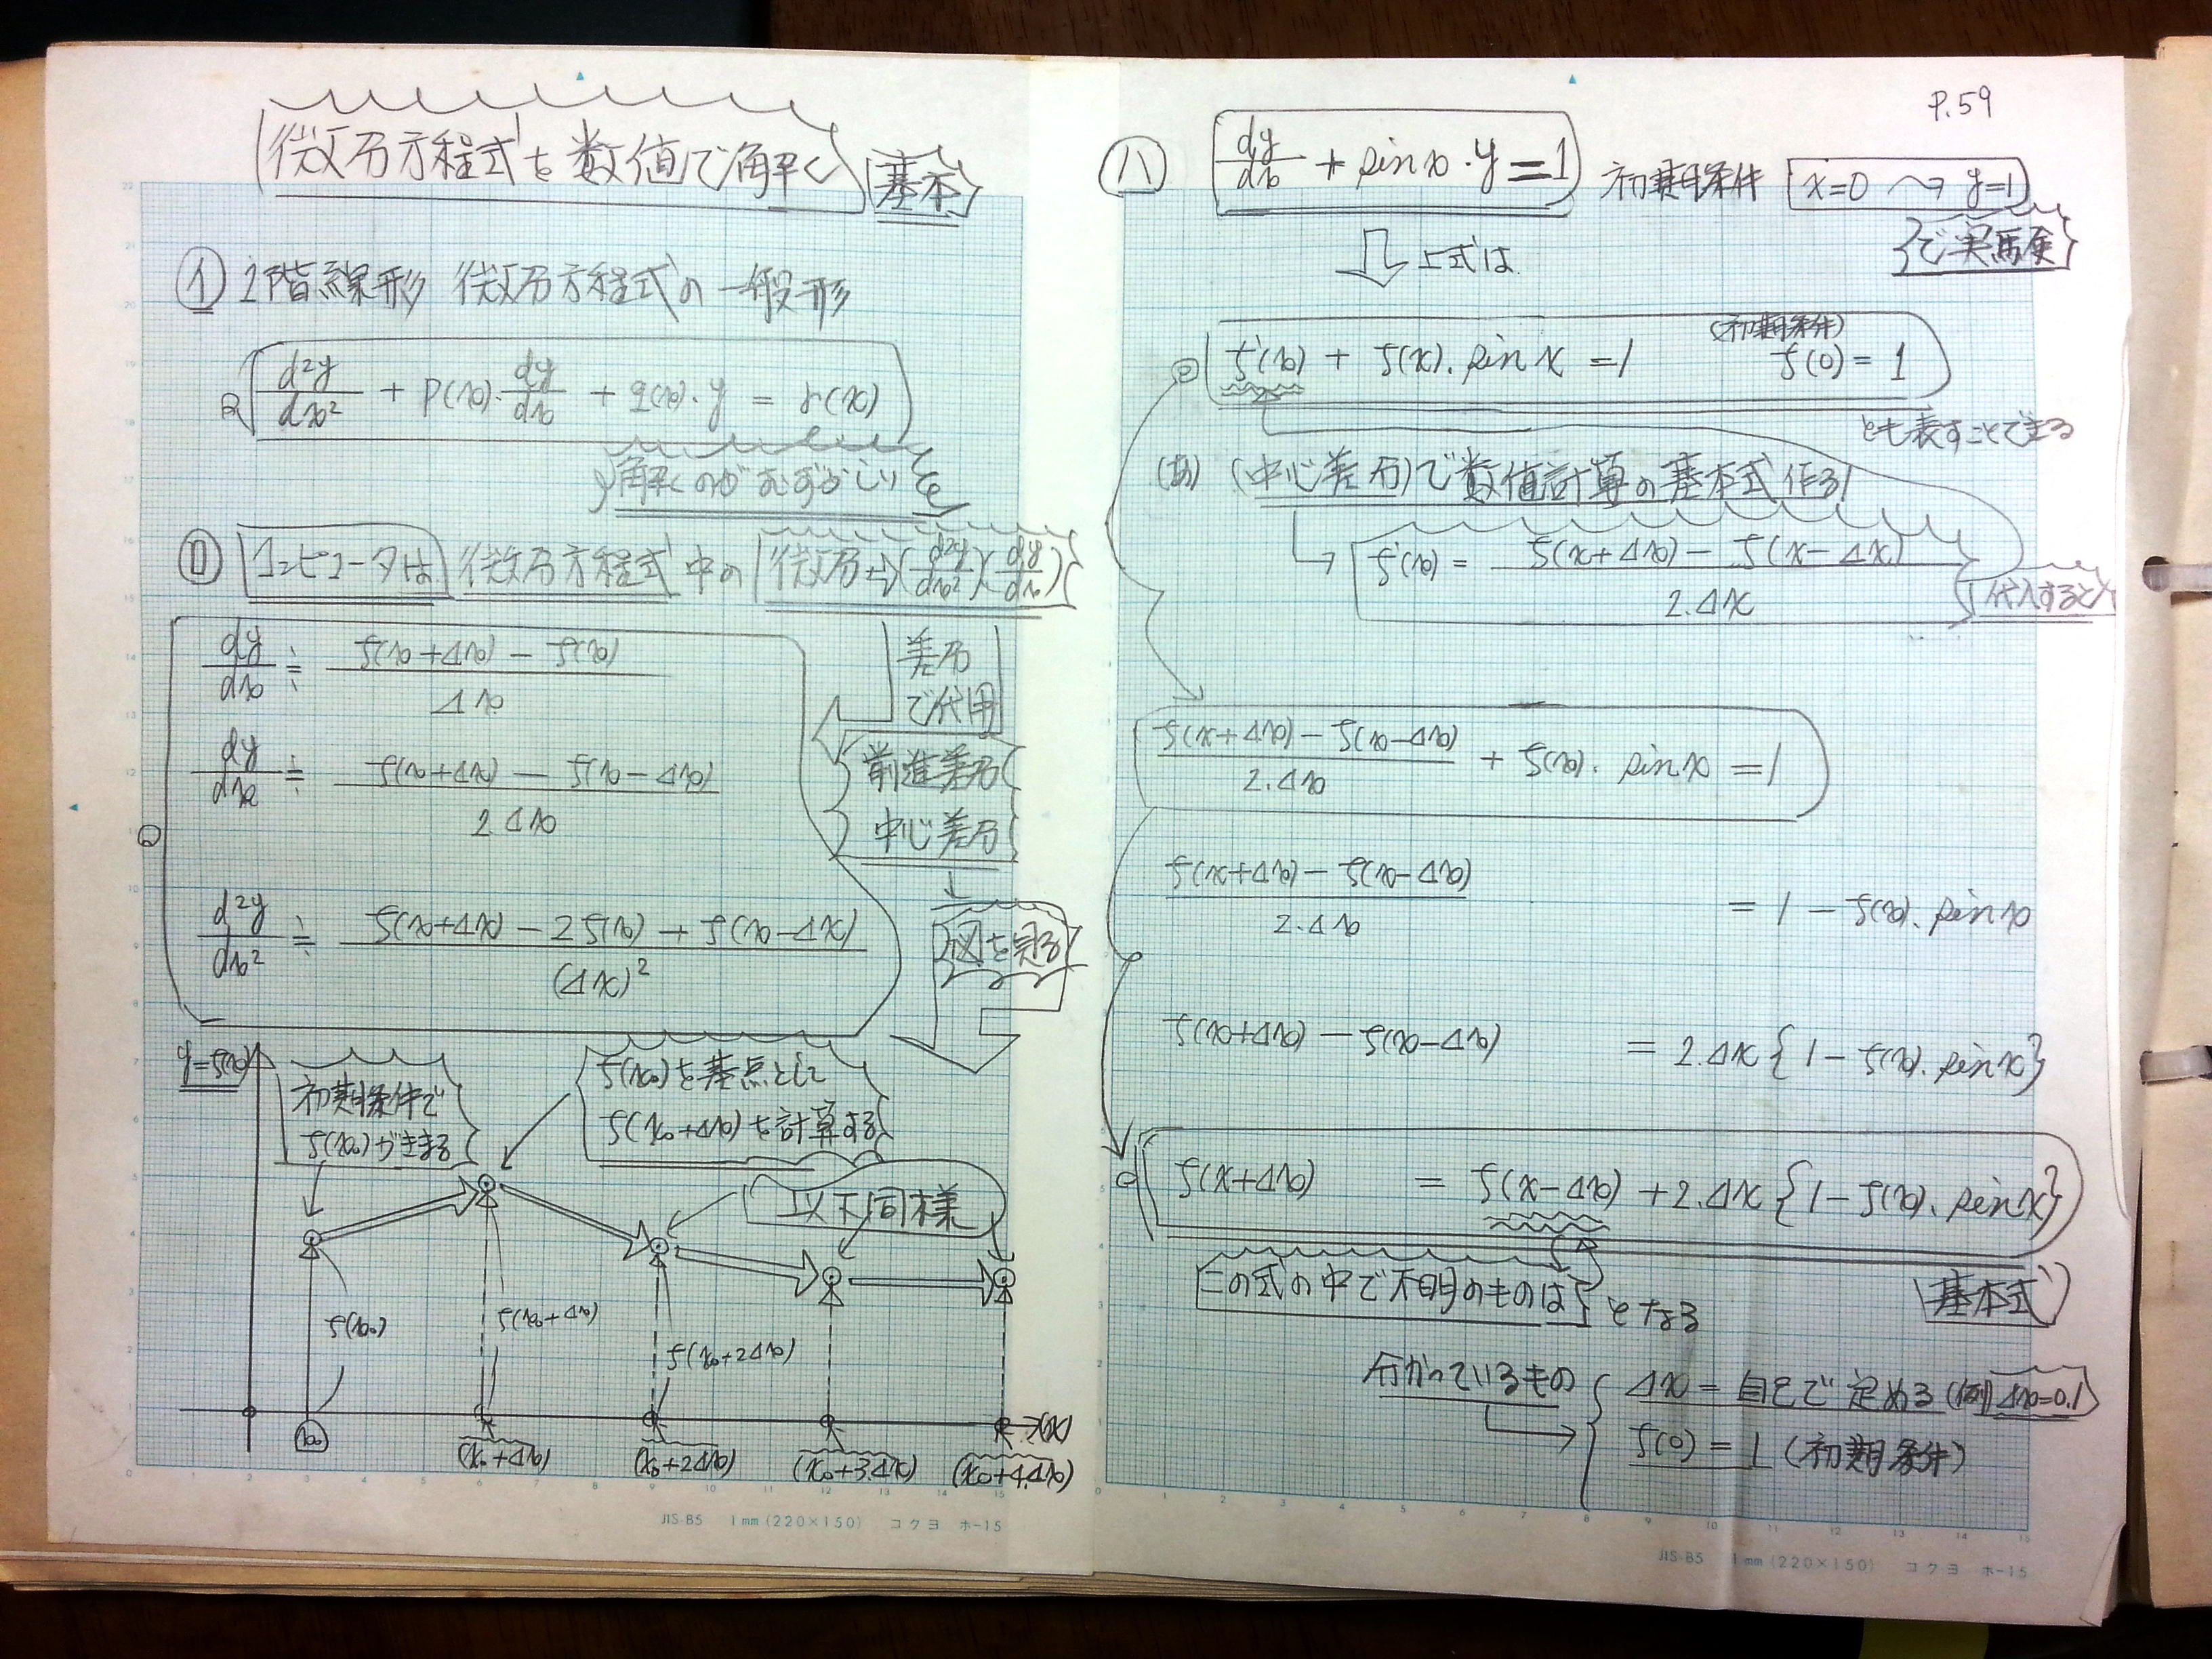 微分方程式を数値で解く 基本
① 2階線形 微分方程式の一般形
d²y/dx² + P(x)・dy/dx + q(x)・y = r(x)
解くのがむずかしい
ロ コンピュータは 微分方程式 中の 微分→(d²y/dx²)(dy/dx)
dy/dx ≒ f(x+Δx) − f(x) / Δx
差分
で代用
dy/dx ≒ f(x+Δx) − f(x−Δx) / 2.Δx
前進差分
中心差分
d²y/dx² ≒ f(x+Δx) − 2f(x) + f(x−Δx) / (Δx)²
図を見る
y=f(x)
初期条件で
f(x₀)がきまる
f(x₀)を基点として
f(x₀+Δx)を計算する
以下同様
f(x₀)
f(x₀+Δx)
f(x₀+2Δx)
→(x)
x₀
(x₀+Δx)
(x₀+2Δx)
(x₀+3.Δx)
(x₀+4.Δx)
JIS-B5 1mm(220×150) コクヨ ホ-15
P.59
ハ dy/dx + sin x・y = 1 初期条件 x=0 → y=1
で実験
上式は
f'(x) + f(x)・sin x = 1 (初期条件) f(0) = 1
とも表すことできる
(あ) (中心差分)で数値計算の基本式作る
f'(x) = f(x+Δx) − f(x−Δx) / 2.Δx
代入すると
f(x+Δx) − f(x−Δx) / 2.Δx + f(x)・sin x = 1
f(x+Δx) − f(x−Δx) / 2.Δx = 1 − f(x)・sin x
f(x+Δx) − f(x−Δx) = 2.Δx{1 − f(x)・sin x}
f(x+Δx) = f(x−Δx) + 2.Δx{1 − f(x)・sin x}
この式の中で不明のものは となる
基本式
分かっているもの
Δx = 自己で定める (例)Δx=0.1
f(0) = 1 (初期条件)
JIS-B5 1mm(220×150) コクヨ ホ-15